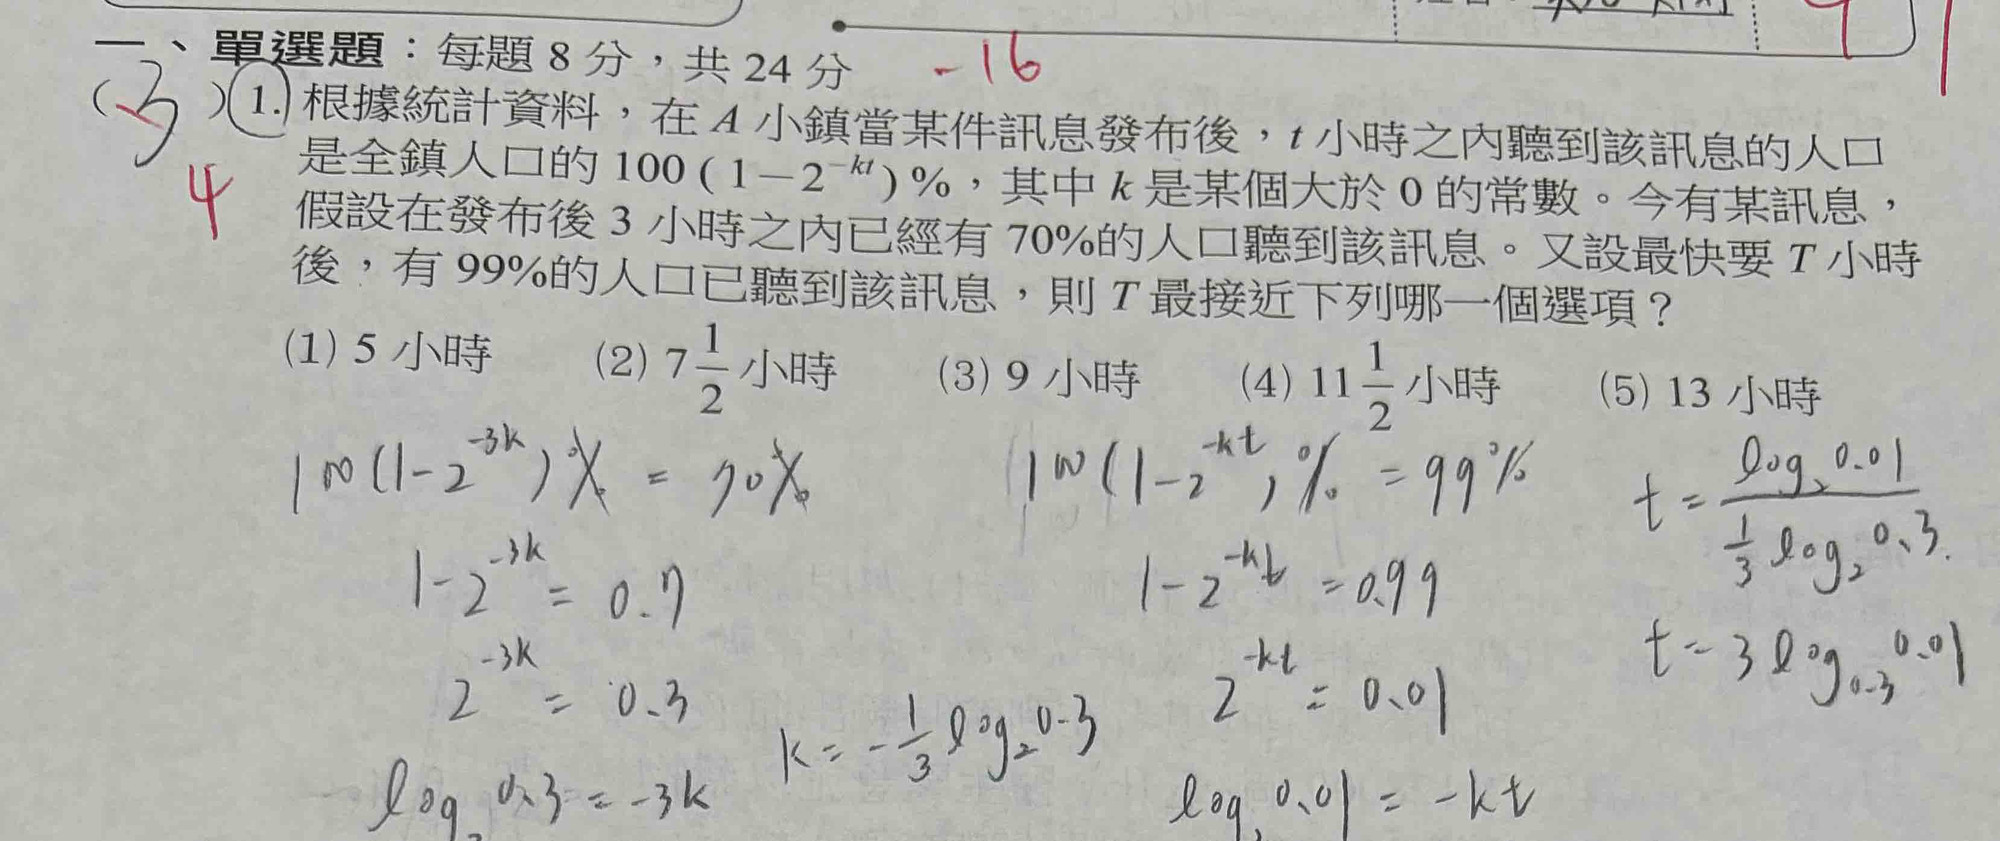 一、單選題：每題 8 分，共 24 分 -16
( 3 ) 1. 根據統計資料，在 A 小鎮當某件訊息發布後，t 小時之內聽到該訊息的人口
4 是全鎮人口的 100 ( 1－2^{-kt} ) %，其中 k 是某個大於 0 的常數。今有某訊息，
假設在發布後 3 小時之內已經有 70%的人口聽到該訊息。又設最快要 T 小時
後，有 99%的人口已聽到該訊息，則 T 最接近下列哪一個選項？
(1) 5 小時 (2) 7 1/2 小時 (3) 9 小時 (4) 11 1/2 小時 (5) 13 小時
100(1-2^{-3k})% = 70% 100(1-2^{-kt})% = 99% t = log₂0.01 / (1/3 log₂0.3)
1-2^{-3k} = 0.7 1-2^{-kt} = 0.99
2^{-3k} = 0.3 2^{-kt} = 0.01 t = 3 log_{0.3}0.01
k = -1/3 log₂0.3
log₂0.3 = -3k log₂0.01 = -kt